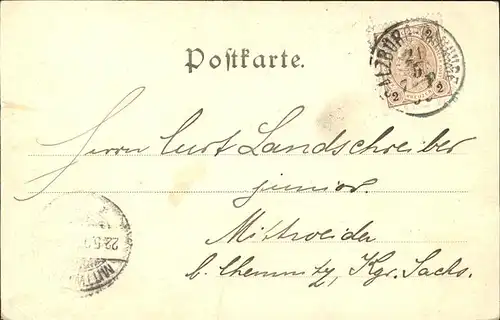 Postkarte.
SALZBURG-BAHNHOF
21
5
2 KREUZER 2
Herrn Curt Landschreiber
junior.
Mittweida
b. Chemnitz, Kgr. Sachs.
22.5.
MITTW